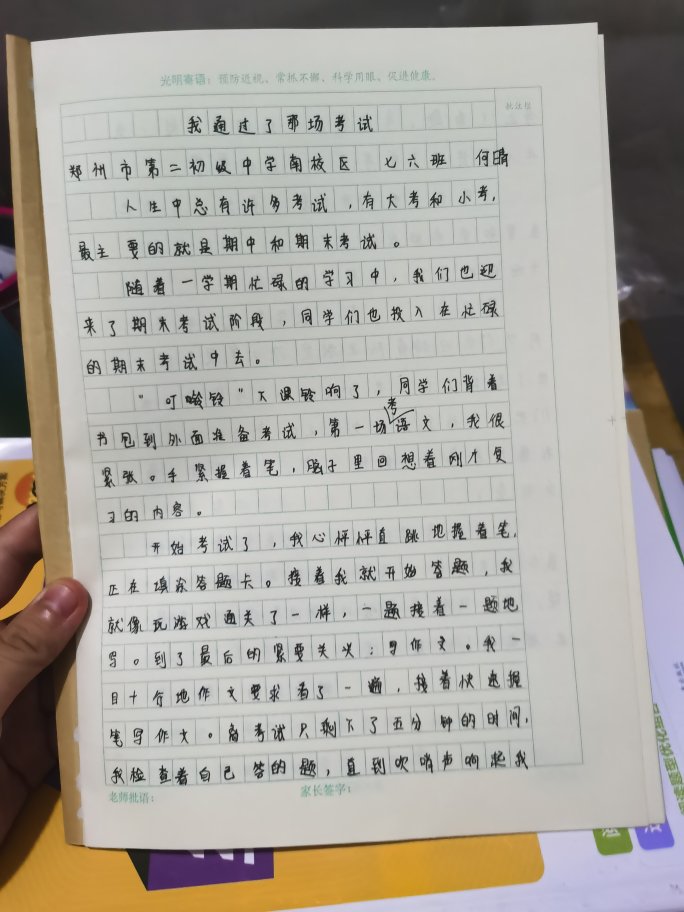 光明寄语：预防近视、常抓不懈、科学用眼、促进健康。
批注栏
我通过了那场考试
郑州市第二初级中学南校区 七六班 何晴
人生中总有许多考试，有大考和小考，
最主要的就是期中和期末考试。
随着一学期忙碌的学习中，我们也迎
来了期末考试阶段，同学们也投入在忙碌
的期末考试中去。
“叮呤铃”下课铃响了，同学们背着
书包到外面准备考试，第一场考语文，我很
紧张。手紧握着笔，脑子里回想着刚才复
习的内容。
开始考试了，我心怦怦直跳地握着笔，
正在填涂答题卡。接着我就开始答题，我
就像玩游戏通关了一样，一题接着一题地
写。到了最后的紧要关头：写作文。我一
目十行地作文要求看了一遍，接着快速握
笔写作文。离考试只剩下了五分钟的时间，
我检查着自己答的题，直到吹哨声响起我
老师批语： 家长签字：